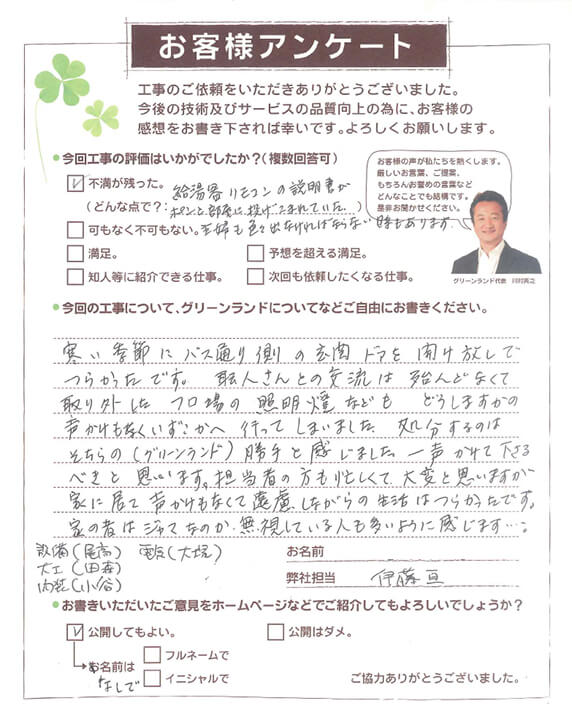 お客様アンケート
工事のご依頼をいただきありがとうございました。
今後の技術及びサービスの品質向上の為に、お客様の
感想をお書き下されば幸いです。よろしくお願いします。
今回工事の評価はいかがでしたか?(複数回答可)
不満が残った。給湯器リモコンの説明書が
(どんな点で?:ポンと部屋に投げこまれていた。)
可もなく不可もない。主婦も色々出なければならない時もあります。
満足。
予想を超える満足。
知人等に紹介できる仕事。
次回も依頼したくなる仕事。
お客様の声が私たちを熱くします。
厳しいお言葉、ご提案、
もちろんお誉めの言葉など
どんなことでも結構です。
是非お聞かせください。
グリーンランド代表
今回の工事について、グリーンランドについてなどご自由にお書きください。
寒い季節にバス通り側の玄関ドアを開け放しで
つらかったです。職人さんとの交流は殆んどなくて
取り外したフロ場の照明燈なども どうしますかの
声かけもなくいずこかへ行ってしまいました。処分するのは
そちらの(グリーンランド)勝手と感じました。一声かけて下さる
べきと思います。担当者の方も忙しくて大変と思いますが
家に居て声かけもなくて遠慮しながらの生活はつらかったです。
家の者はジャマなのか、無視している人も多いように感じます…。
設備(尾高) 電気(大塚)
大工(田森)
内装(小谷)
お名前
弊社担当 伊藤亘
お書きいただいたご意見をホームページなどでご紹介してもよろしいでしょうか?
公開してもよい。
公開はダメ。
お名前は
なしで
フルネームで
イニシャルで
ご協力ありがとうございました。